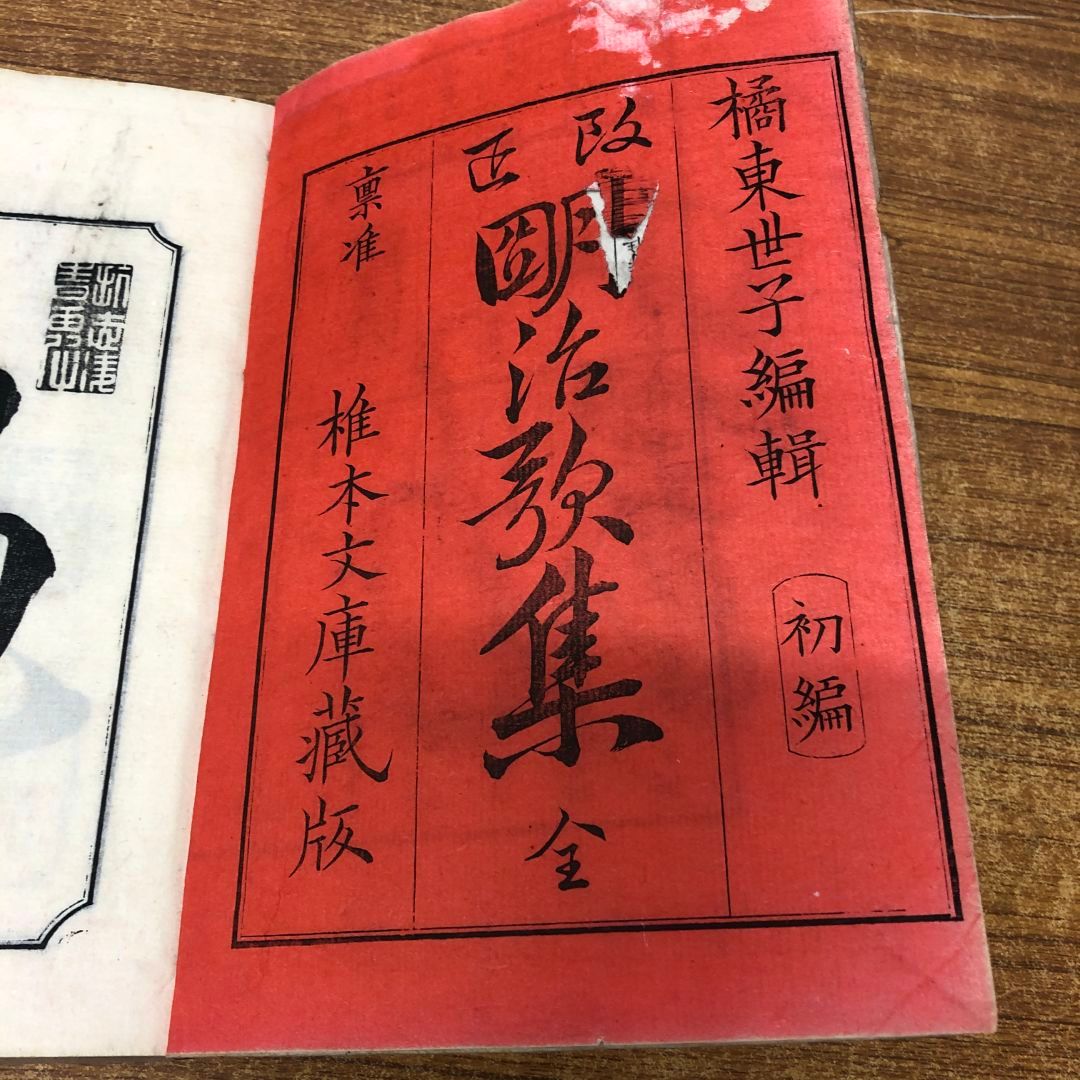 橘東世子編輯
初編
改正
明治歌集
全
稟准
椎本文庫藏版